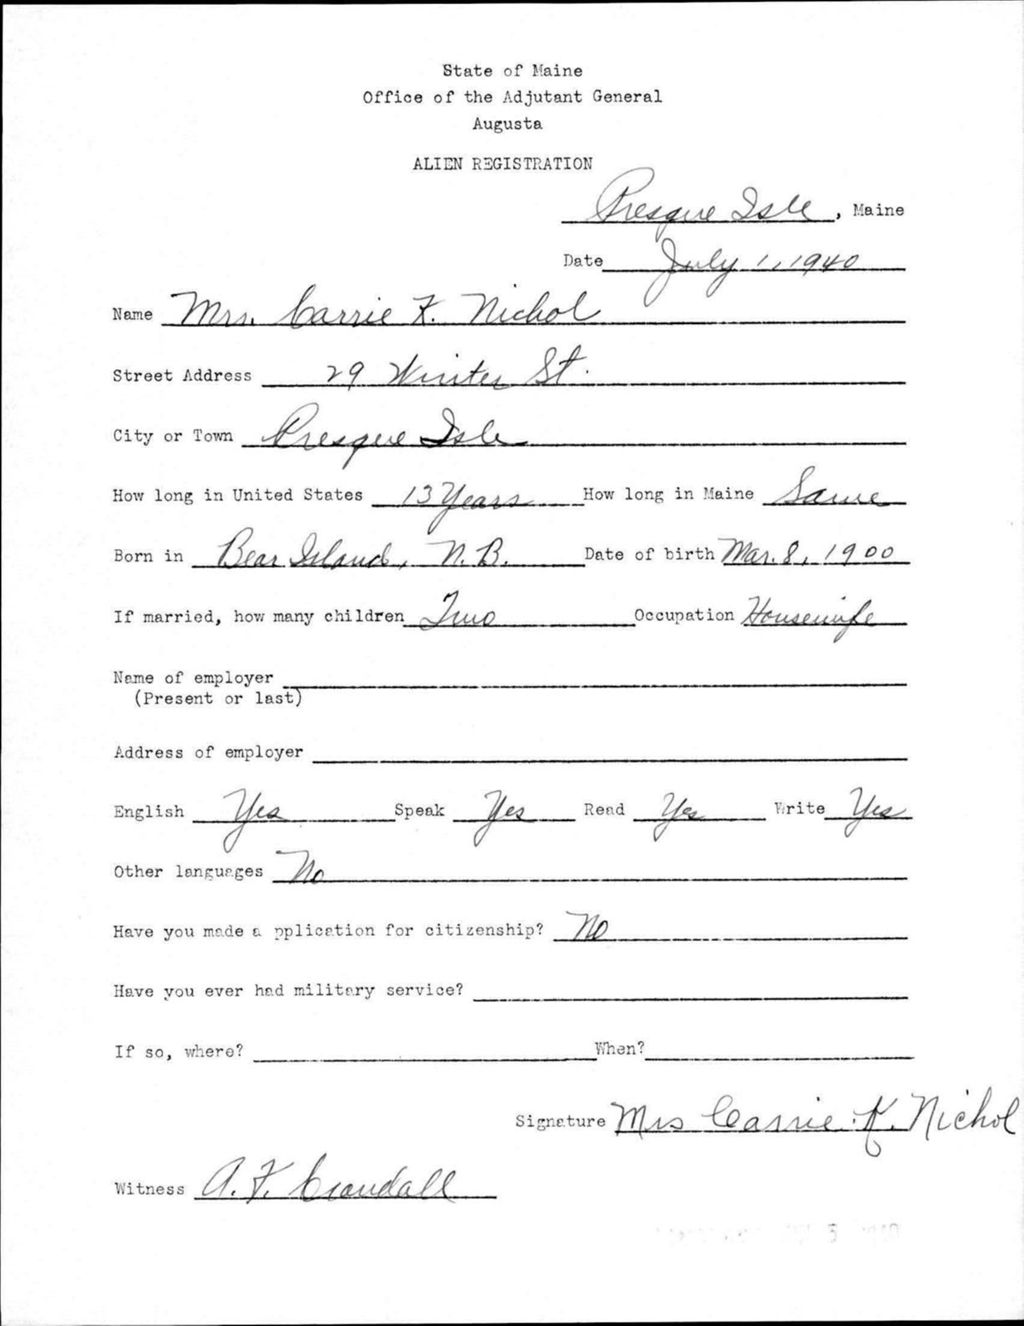 State of Maine
Office of the Adjutant General
Augusta
ALIEN REGISTRATION
Presque Isle, Maine
Date July 1, 1940
Name Mrs. Carrie F. Nichol
Street Address 29 Winter St.
City or Town Presque Isle
How long in United States 13 Years How long in Maine Same
Born in Bear Island, N. B. Date of birth Mar. 8, 1900
If married, how many children Two Occupation Housewife
Name of employer
(Present or last)
Address of employer
English Yes Speak Yes Read Yes Write Yes
Other languages No
Have you made a pplication for citizenship? No
Have you ever had military service?
If so, where? When?
Signature Mrs Carrie Nichol
Witness A. F. Crandall